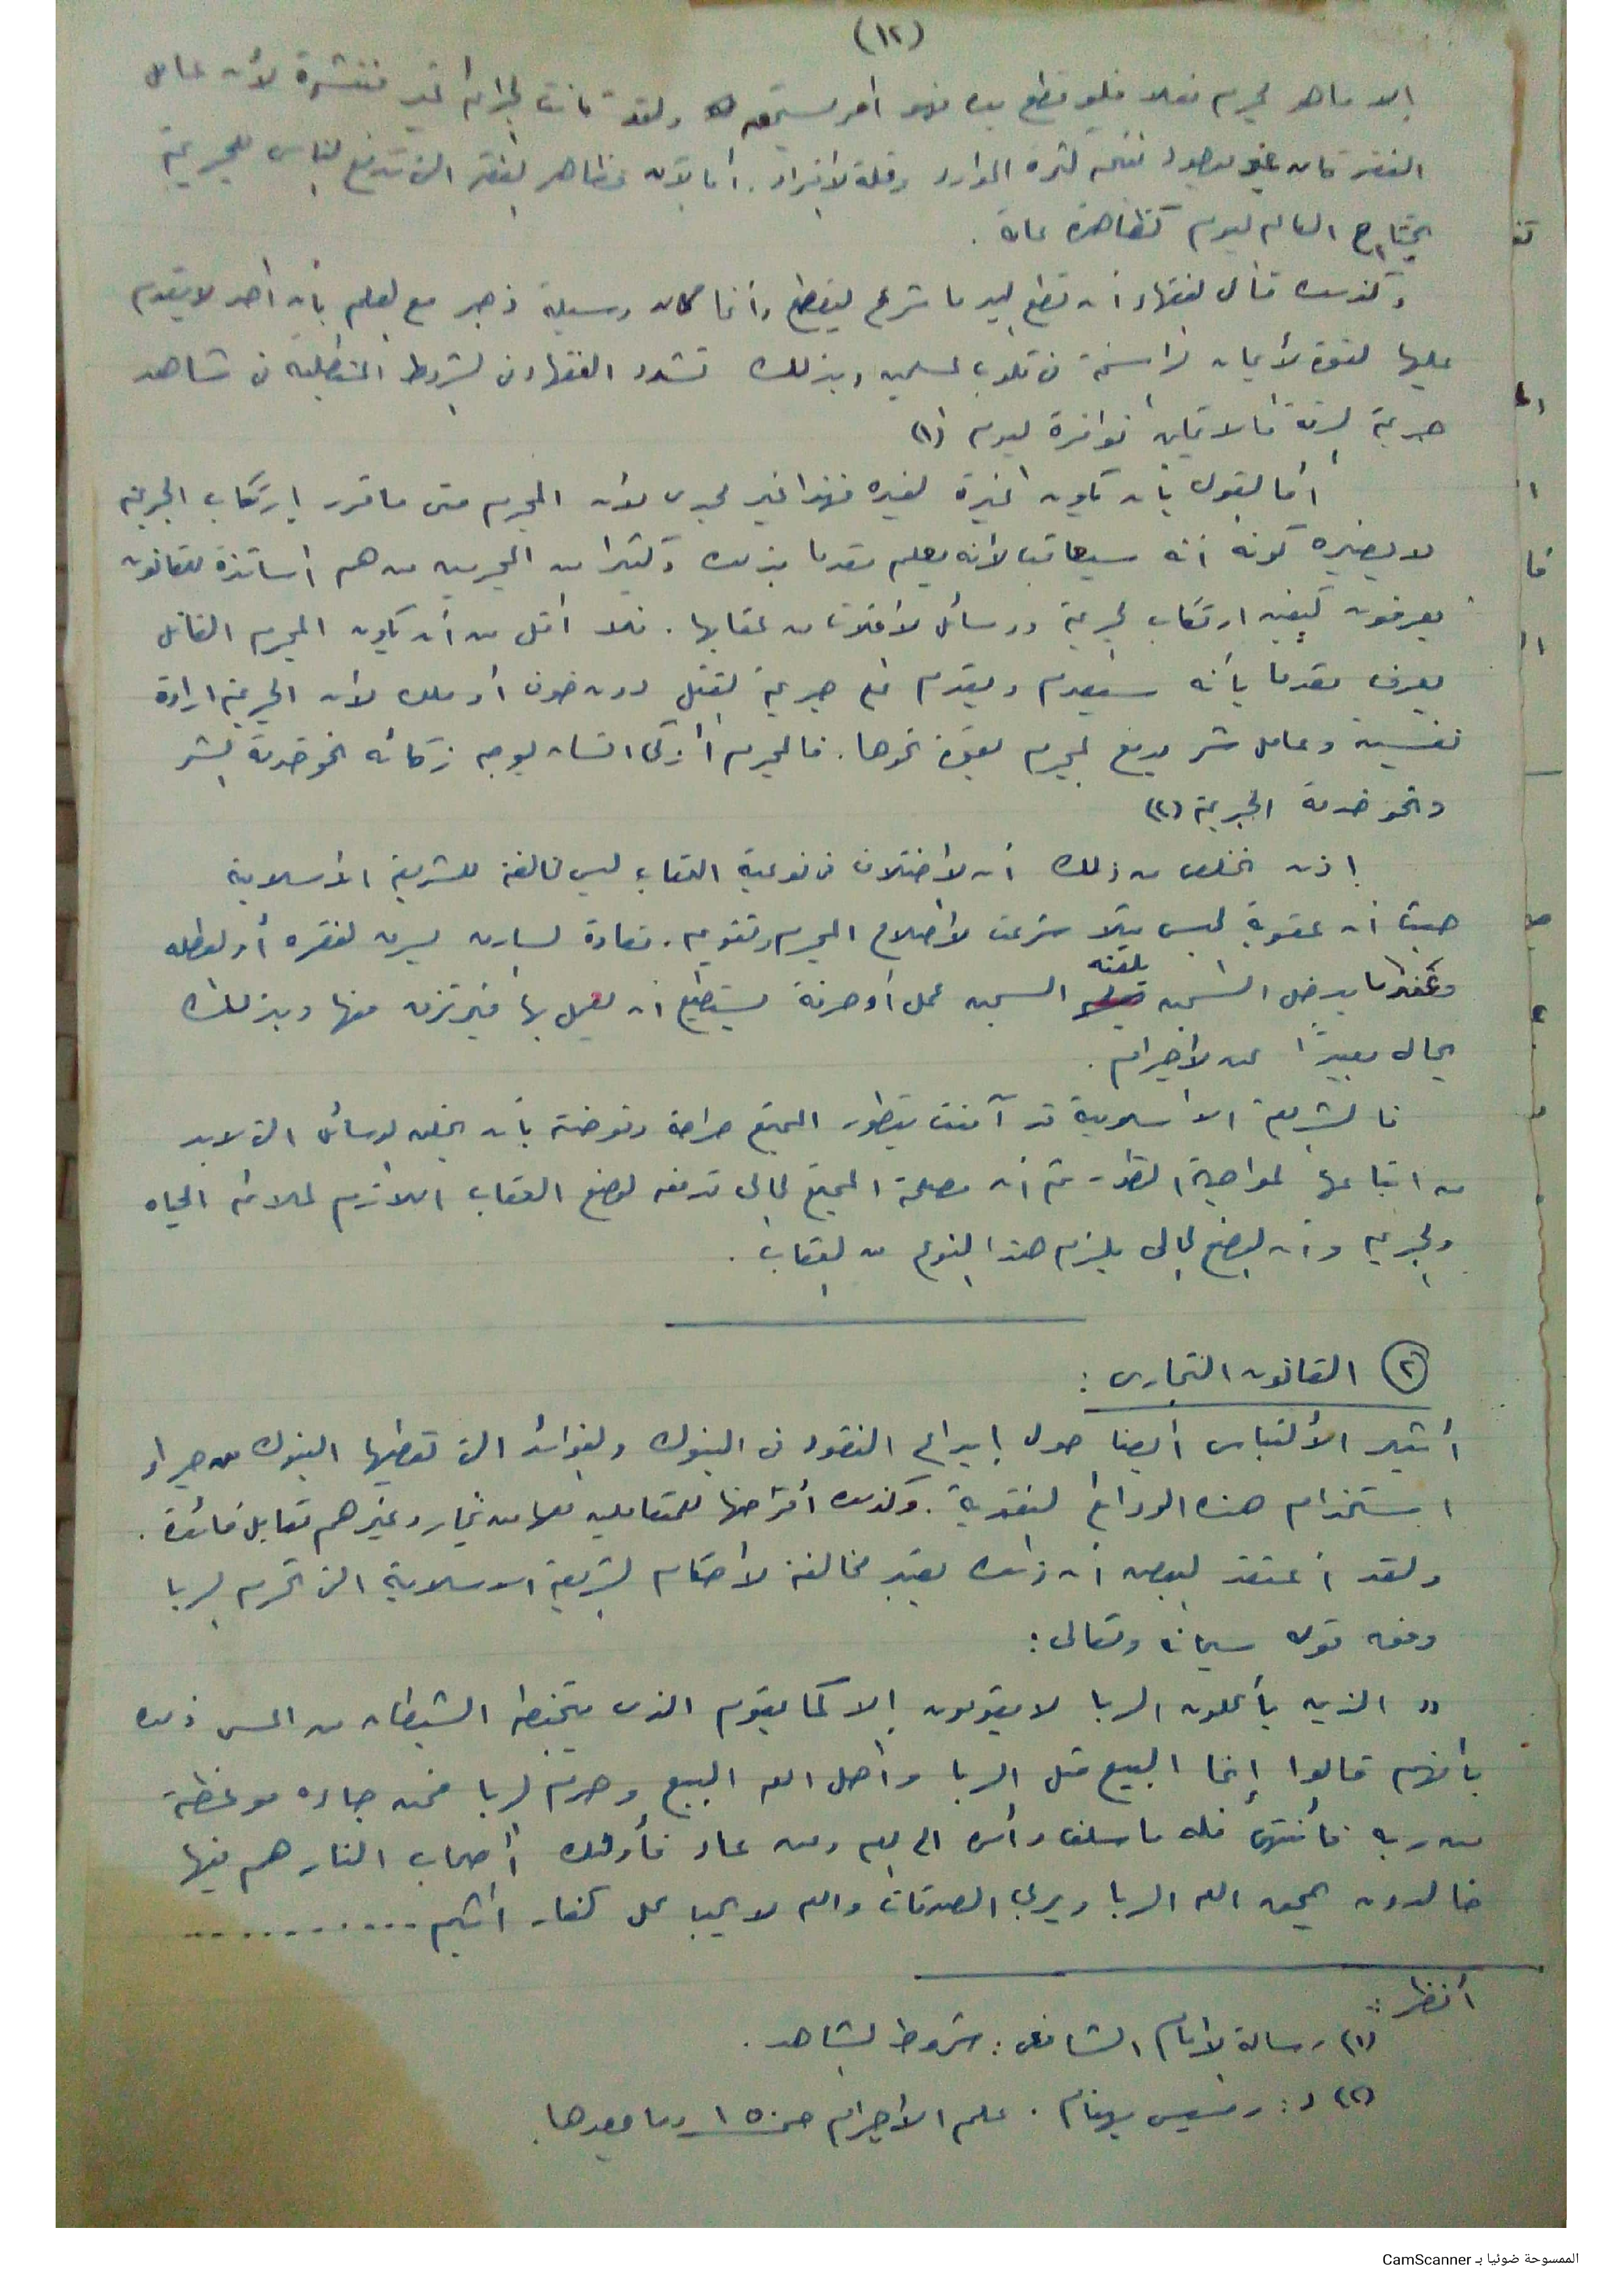 (١٢)
إلا ما هو مجرم فعلا فلو قطع يده فهو أمر يستحقه ولقد كانت الجرائم غير منتشرة لأن عامل
الفقر كان غير موجود نتيجة لكثرة الموارد وقلة الأفراد. أما الآن مظاهر الفقر التى تدفع الناس للجريمة
تجتاح العالم اليوم كظاهرة عامة .
وكذلك قال الفقهاء أن قطع اليد ما شرع ليقطع وأنما كان وسيلة زجر مع العلم بأن أحد لا يقدم
عليها لقوة الأيمان الراسخة فى قلوب المسلمين وبذلك تشدد الفقهاء فى الشروط المتطلبة فى شاهد
جريمة السرقة متوافرة اليوم (١)
أما القول بأن تكون العبرة لغيره فهذا غير مجدى لأن المجرم متى ما قرر إرتكاب الجريمة
لا يضيره كونه أنه سيعاقب لأنه يعلم مقدما بذلك وكثيرا من المجرمين من هم اساتذة للقانون
يعرفون كيفية ارتكاب الجريمة ووسائل الأفلات من عقابها . فلا أقل من أن يكون المجرم القاتل
يعرف مقدما بأنه سيعدم ويقدم على جريمة القتل دون خوف أو ملل لأن الجريمة ارادة
نفسية وعامل شر يدفع المجرم بقوة نحوها. فالمجرم أذكى انسان يوجه ذكائه نحو خدمة الشر
ونحو خدمة الجريمة (٢)
إذن نخلص من ذلك أن الأختلاف فى نوعية العقاب ليس مخالفة للشريعة الأسلامية
حيث أن عقوبة الحبس مثلا شرعت لأصلاح المجرم وتقويمه. فعادة السارق يسرق لفقره أو لعطله
وعندما يدخل السجن تلقنه السجن عمل أو حرفة يستطيع أن يعمل بها فيرتزق منها وبذلك
يحال بعيدًا عن الأجرام .
فالشريعة الأسلامية قد آمنت بتطور المجتمع صراحة وفوضته بأن يخلق الوسائل التى لابد
من اتباعها لمواجهة التطورات ثم أن مصلحة المجتمع الحالى تدفعه لوضع العقاب اللازم لملائمة الحياه
والجريمة وأن الوضع الحالى يلزم هذا النوع من العقاب .
(٢) القانون التجارى :
أثير الألتباس أيضا حول إيداع النقود فى البنوك والفوائد التى تعطيها البنوك من جراء
استخدام هذه الودائع النقدية . وكذلك أقراضها للمتعاملين معها من تجار وغيرهم مقابل فائدة .
ولقد أعتقد البعض أن ذلك يعتبر مخالفة لأحكام الشريعة الاسلامية التى تحرم الربا
وفقه قوله سبحانه وتعالى :
" الذين يأكلون الربا لا يقومون إلا كما يقوم الذى يتخبطه الشيطان من المس ذلك
بأنهم قالوا إنما البيع مثل الربا وأحل الله البيع وحرم الربا فمن جاءه موعظة
من ربه فأنتهى فله ما سلف وأمره الى الله ومن عاد فأولئك أصحاب النار هم فيها
خالدون يمحق الله الربا ويربى الصدقات والله لا يحب كل كفار أثيم ............
أنظر :
(١) رسالة الأمام الشافعى : شروط الشاهد .
(٢) د : رمسيس بهنام . علم الأجرام وما بعدها .
الممسوحة ضوئيا بـ CamScanner